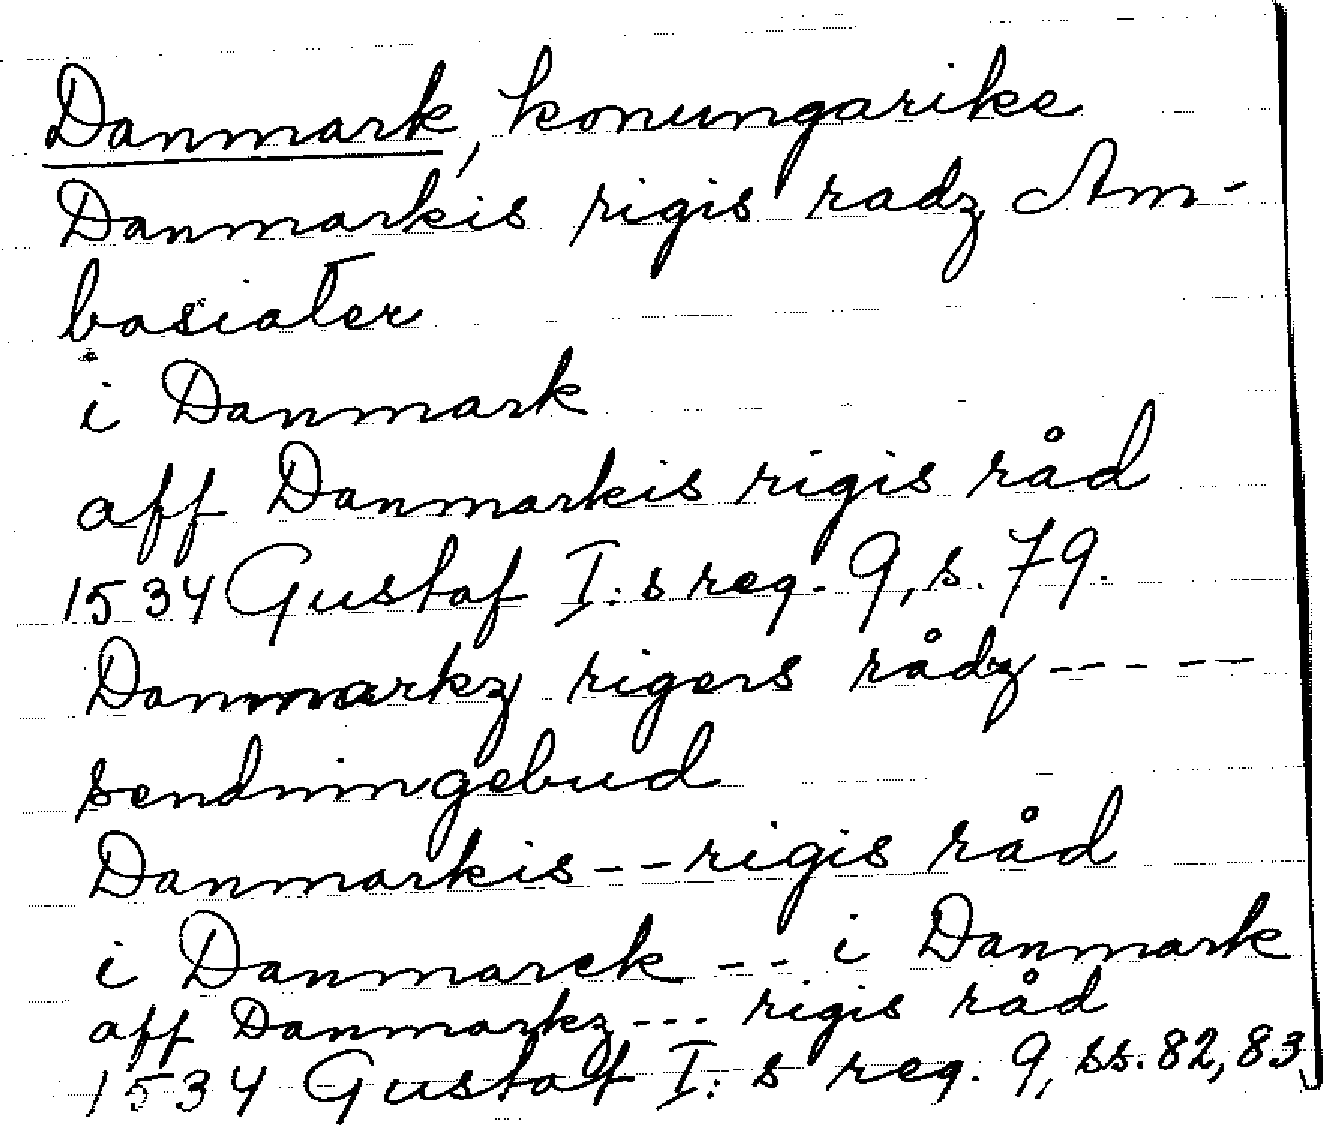 Danmark, konungarike
Danmarkis rigis radz Am-
basiater
i Danmark
aff Danmarkis rigis råd
1534 Gustaf I:s reg. 9, s. 79.
Danmarkz rigens rådz -----
sendningebud
Danmarkis -- rigis råd
i Danmarck --- i Danmark
aff Danmarkz --- rigis råd
1534 Gustaf I:s reg. 9, ss. 82, 83